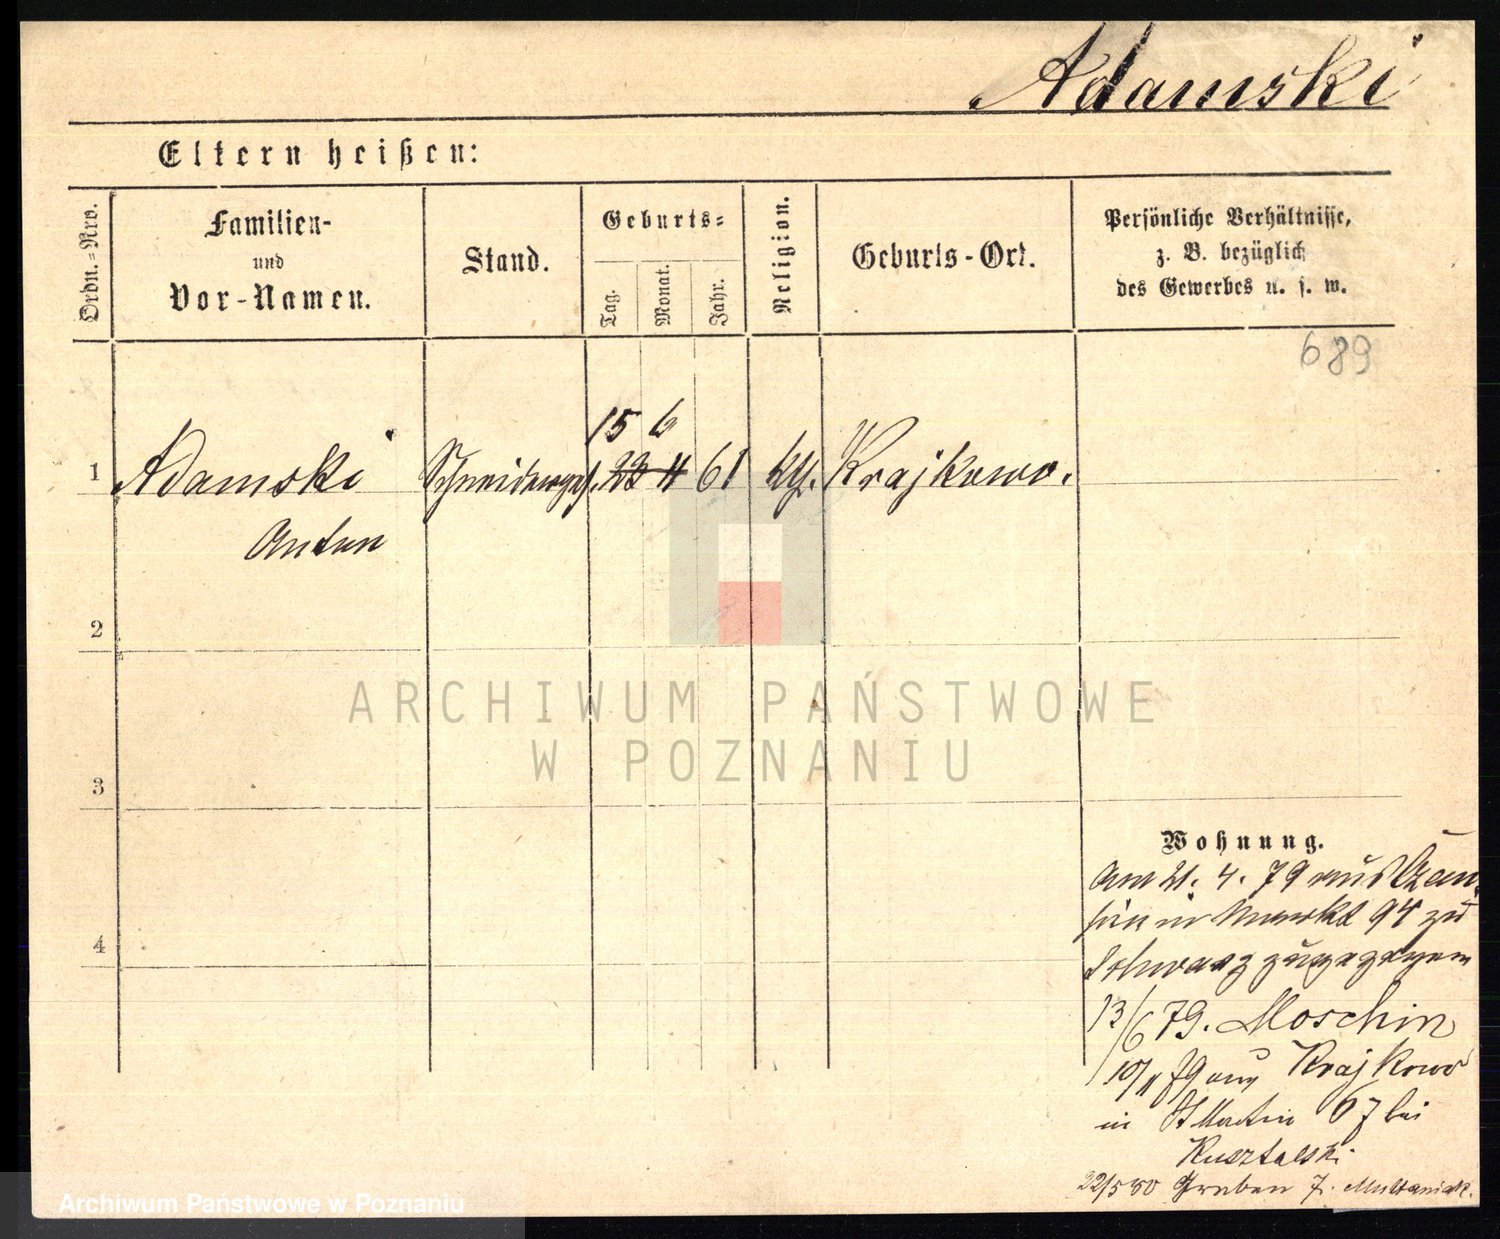 Adamski
Eltern heißen:
Ordn.=Nro.
Familien-
und
Vor-Namen.
Stand.
Geburts=
Tag.
Monat.
Jahr.
Religion.
Geburts-Ort.
Persönliche Verhältnisse,
z. B. bezüglich
des Gewerbes u. s. w.
689
15 6
1 Adamski Schneiderges. 23 11 61 kth. Krajkowo.
Anton
2
ARCHIWUM PAŃSTWOWE
W POZNANIU
3
Wohnung.
Am 21. 4. 79 aus
in Markt 94 zu
Schwarz zugezogen
13/6 79. Moschin
10/11 79 aus Krajkowo
4
in St Martin 67 bei
Kusztalski
22/5 80 Graben 7.
Archiwum Państwowe w Poznaniu